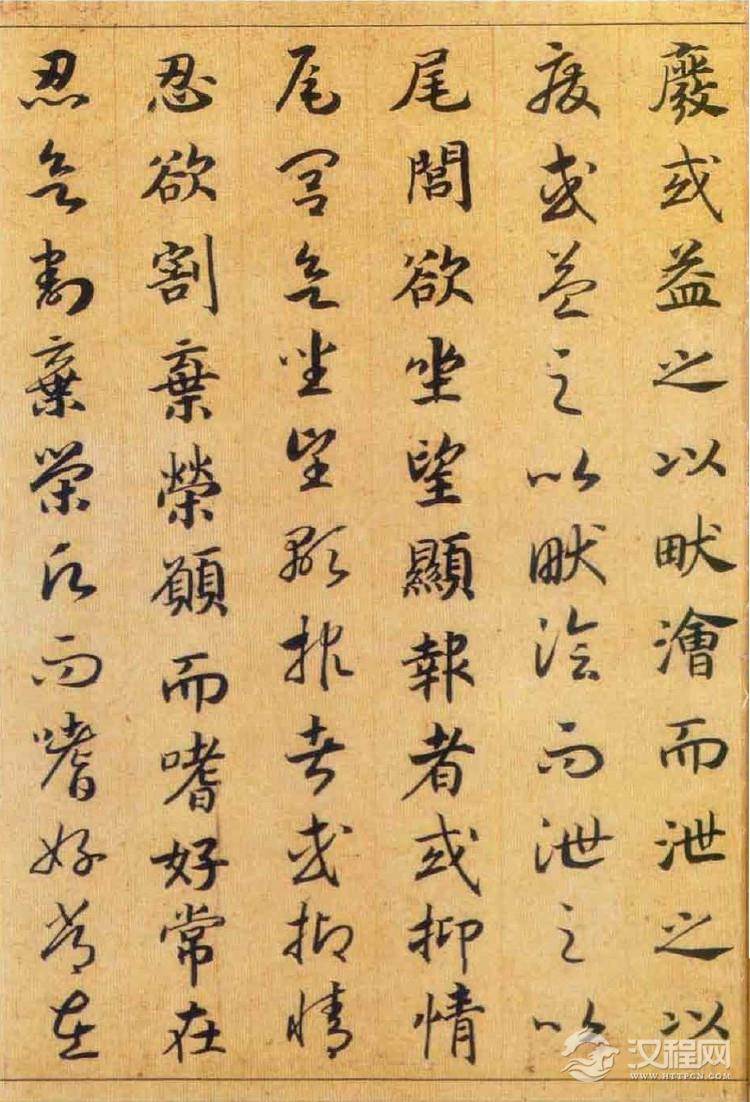 廢或益之以畎澮而泄之以
廢或益之以畎澮而泄之以
尾閭欲坐望顯報者或抑情
尾閭欲坐望顯報者或抑情
忍欲割棄榮願而嗜好常在
忍欲割棄榮願而嗜好常在
汉程网
WWW.HTTPCN.COM